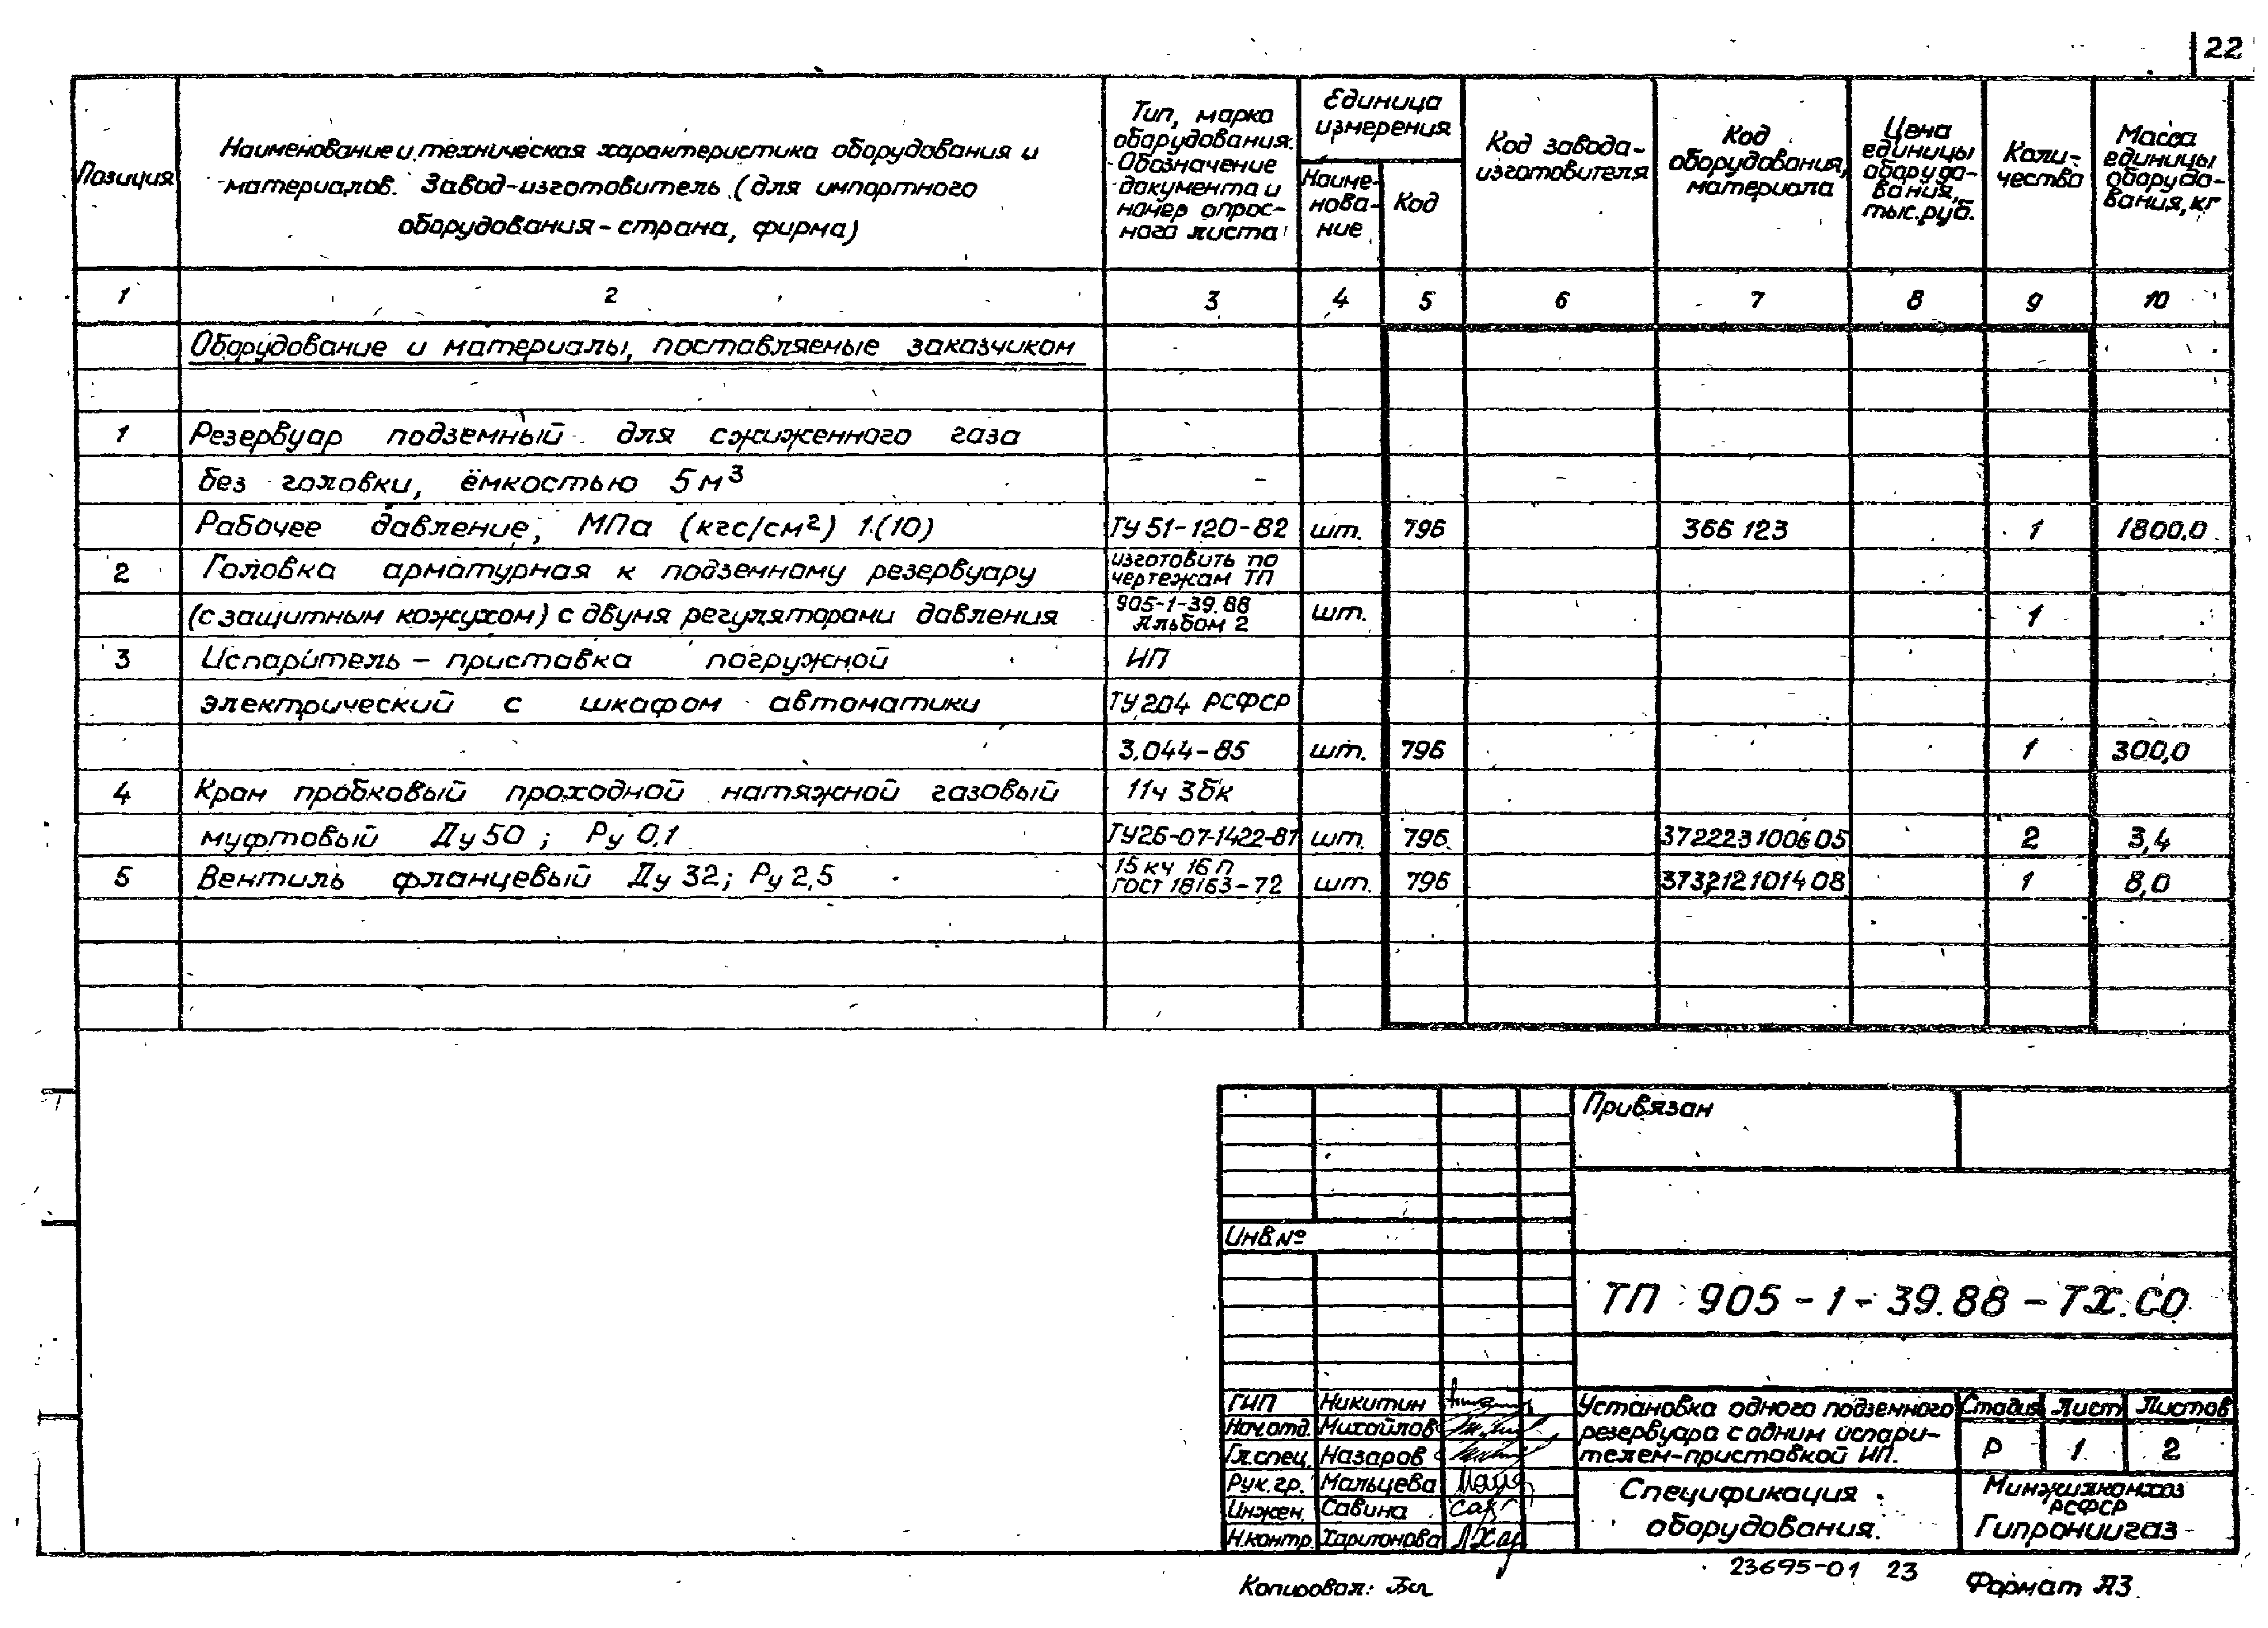 22
Позиция
Наименование и техническая характеристика оборудования и
материалов. Завод-изготовитель (для импортного
оборудования - страна, фирма)
Тип, марка
оборудования.
Обозначение
документа и
номер опрос-
ного листа
Единица
измерения
Наиме-
нова-
ние
Код
Код завода-
изготовителя
Код
оборудования,
материала
Цена
единицы
оборудо-
вания,
тыс.руб.
Коли-
чество
Масса
единицы
оборудо-
вания, кг
1 2 3 4 5 6 7 8 9 10
Оборудование и материалы, поставляемые заказчиком
1 Резервуар подземный для сжиженного газа
без головки, ёмкостью 5 м³
Рабочее давление, МПа (кгс/см²) 1.(10) ТУ 51-120-82 шт. 796 366 123 1 1800,0
2 Головка арматурная к подземному резервуару изготовить по
чертежам ТП
(с защитным кожухом) с двумя регуляторами давления 905-1-39.88
Альбом 2 шт. 1
3 Испаритель - приставка погружной ИП
электрический с шкафом автоматики ТУ 204 РСФСР
3.044-85 шт. 796 1 300,0
4 Кран пробковый проходной натяжной газовый 11ч 3бк
муфтовый Ду 50 ; Ру 0,1 ТУ26-07-1422-87 шт. 796 372223100605 2 3,4
5 Вентиль фланцевый Ду 32; Ру 2,5 15 кч 16 п
ГОСТ 18163-72 шт. 796 373212101408 1 8,0
Привязан
Инв.№
ТП 905-1-39.88-ТХ.СО
ГИП Никитин
Нач.отд. Михайлов
Гл.спец. Назаров
Рук.гр. Мальцева
Инжен. Савина
Н.контр. Харитонова
Установка одного подземного
резервуара с одним испари-
телем-приставкой ИП.
Стадия Лист Листов
Р 1 2
Спецификация
оборудования.
Минжилкомхоз
РСФСР
Гипрониигаз
23695-01 23
Копировал:
Формат А3